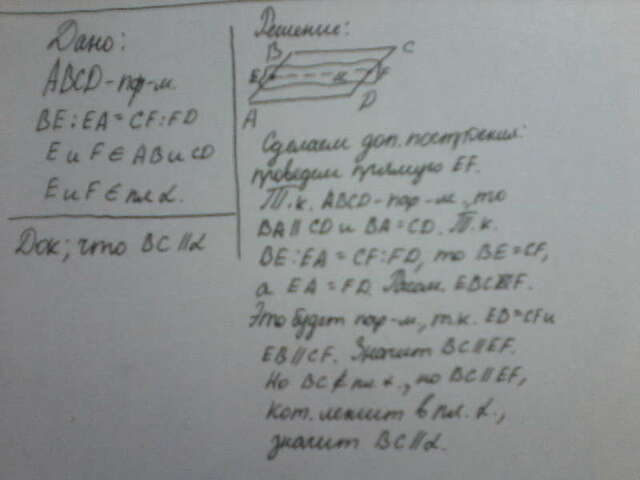 Дано:
ABCD - пар-м.
BE : EA = CF : FD
E и F ∈ AB и CD
E и F ∈ пл α.
Док; что BC || α
Решение:
B
C
E
α
F
A
D
Сделаем доп. построения:
проведем прямую EF.
Т.к. ABCD - пар-м., то
BA || CD и BA = CD. Т.к.
BE : EA = CF : FD, то BE = CF,
а EA = FD. Рассм. EBCF.
Это будет пар-м., т.к. EB = CF и
EB || CF. Значит BC || EF.
Но BC ∉ пл α., но BC || EF,
кот. лежит в пл. α.,
значит BC || α.